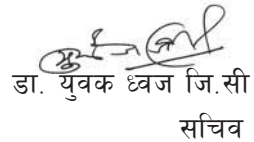 डा. युवक ध्वज जि.सी
सचिव